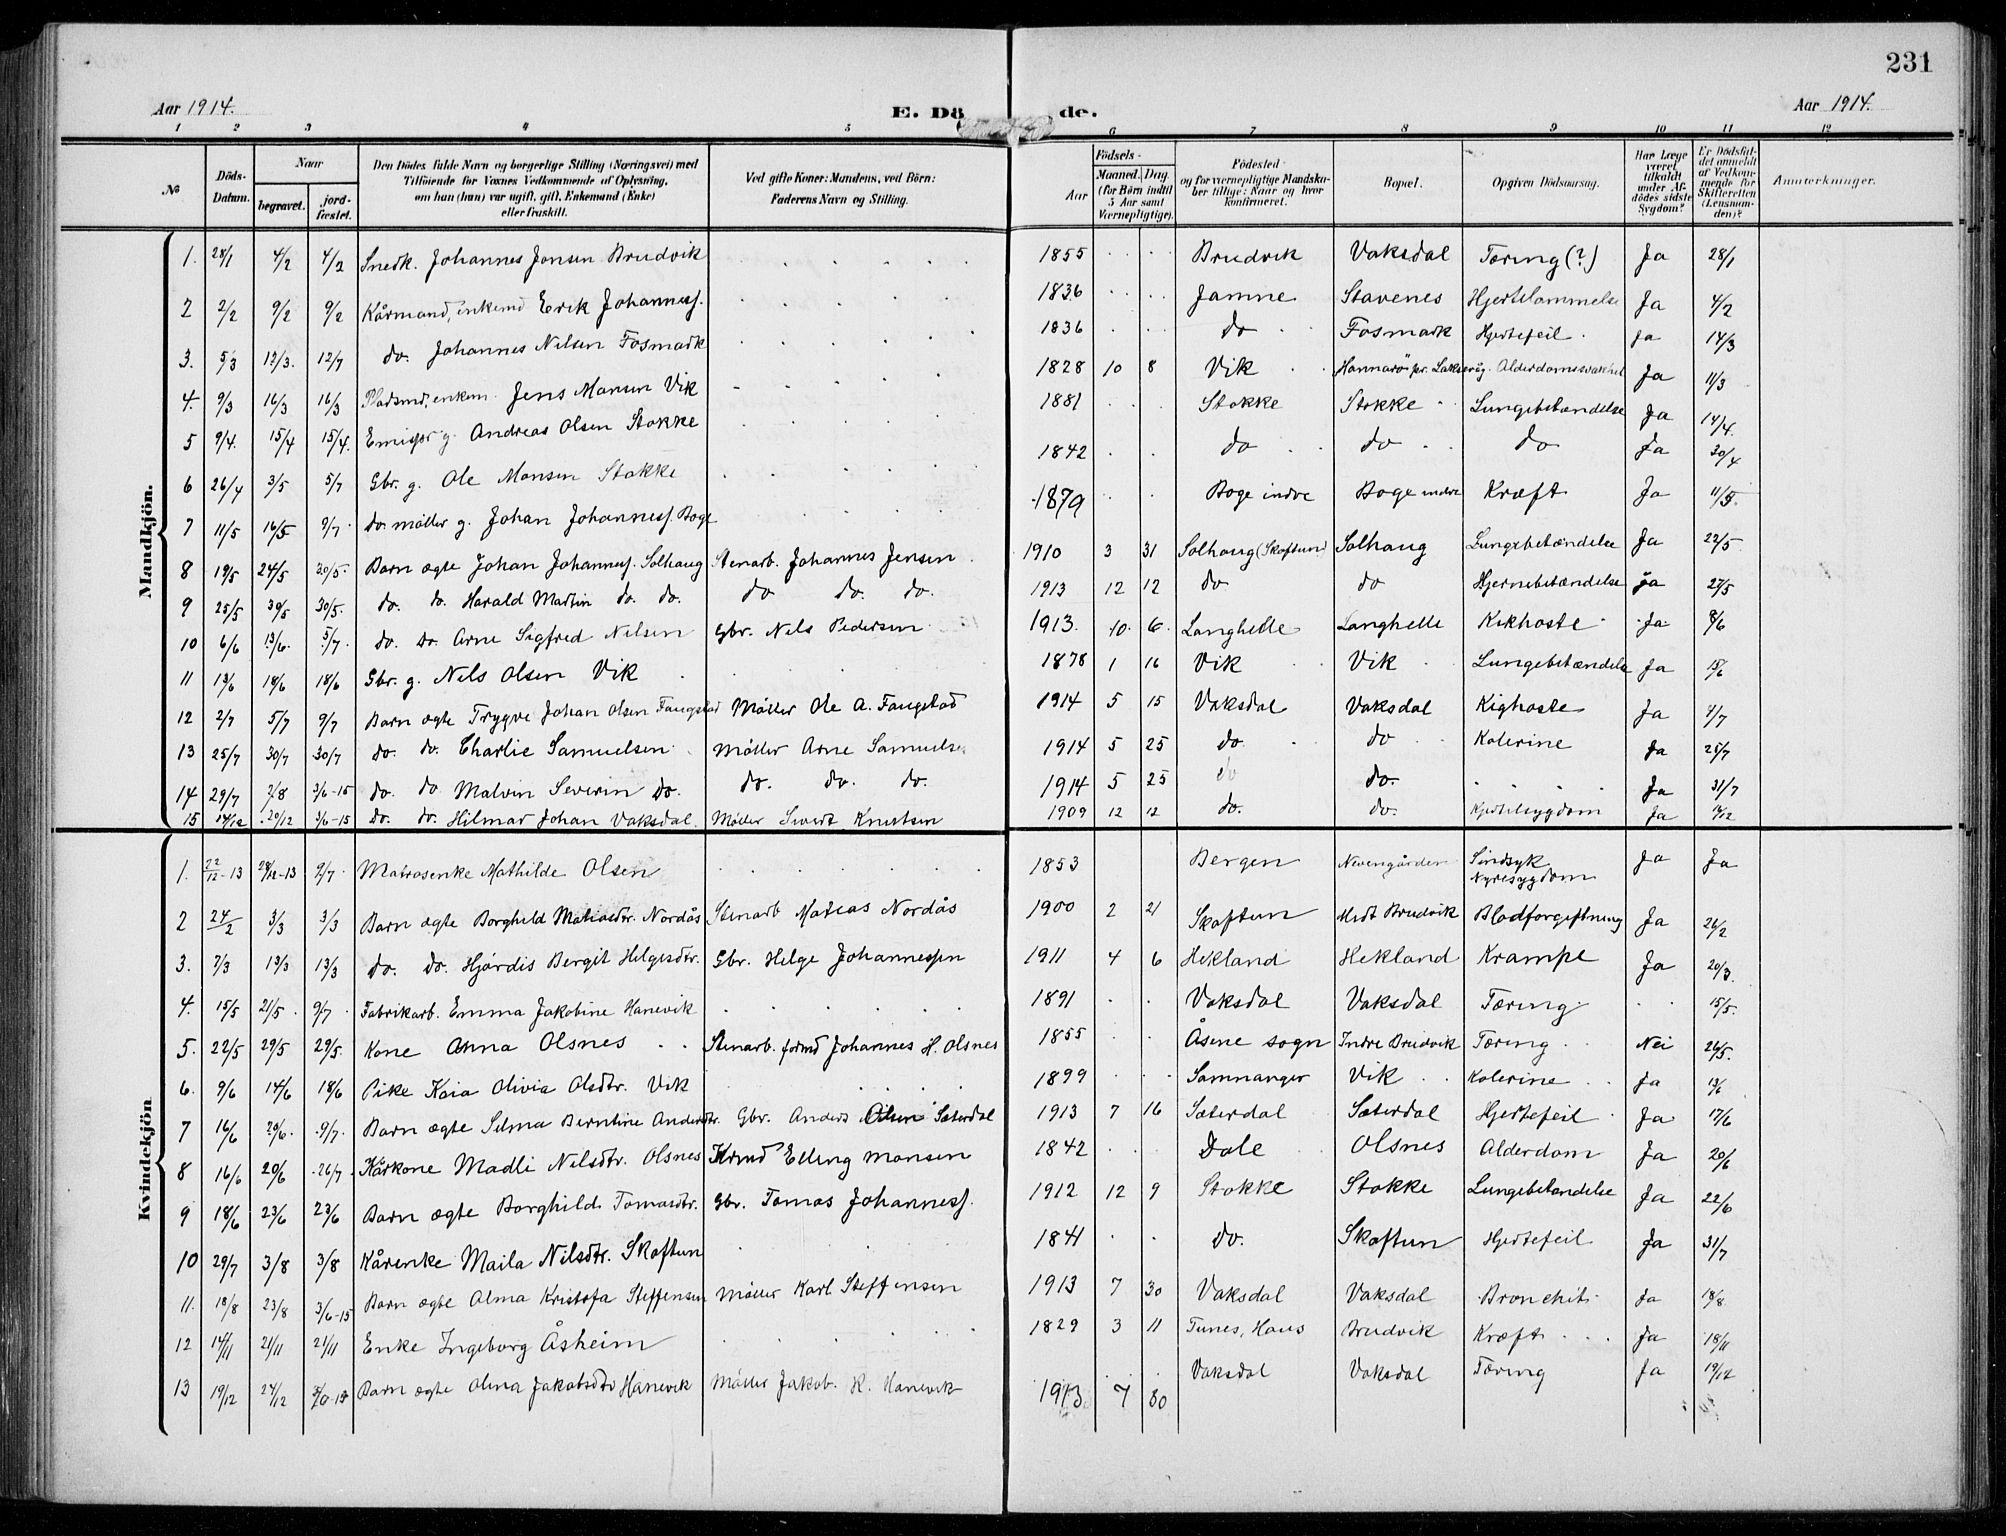 231
Aar 1914.
E. Dö de.
Aar 1914.
1 2 3 4 5 6 7 8 9 10 11 12
No
Döds-Datum.
Naar
begravet.
jord-fæstet.
Den Dödes fulde Navn og borgerlige Stilling (Næringsvei) med Tilföiende for Voxnes Vedkommende af Oplysning, om han (hun) var ugift, gift, Enkemand (Enke) eller fraskilt.
Ved gifte Koner: Mandens, ved Börn: Faderens Navn og Stilling.
Födsels-
Aar
Maaned. Dag.
(for Börn indtil 5 Aar samt Værnepligtige).
Födested og for værnepligtige Mandskaber tillige: Naar og hvor konfirmeret.
Bopæl.
Opgiven Dödsaarsag.
Har Læge været tilkaldt under Afdödes sidste Sygdom?
Er Dödsfaldet anmeldt af Vedkommende for Skifteretten (Lensmanden)?
Anmerkninger.
Mandkjön.
1. 28/1 4/2 4/2 Snedk. Johannes Jonsen Brudvik 1855 Brudvik Vaksdal Tæring (?) Ja 28/1
2 2/2 9/2 9/2 Kårmand, enkemd Eerik Johannesf. 1836 Jamne Stavenes Hjertelammelse Ja 4/2
3. 5/3 12/3. 12/7 do. Johannes Nilsen Fosmark 1836 do Fosmark Hjertefeil. Ja 14/3
4. 9/3 16/3 16/3 Pladsmd, enkem. Jens Monsen Vik 1828 10 8 Vik Hannarö pr. Laksevåg. Alderdomssvakhet Ja 11/3
5 9/4. 15/4 15/4. Emispr g. Andreas Olsen Stokke 1881 Stokke Stokke Lungebetændelse Ja 14/4.
6 26/4 3/5 5/7 Gbr. g. Ole Monsen Stokke 1842 do do do Ja 30/4
7 11/5 16/5 9/7. do. møller g. Johan Johannesf. Boge 1879 Boge indre Boge indre Kræft Ja 11/5.
8 19/5 24/5 30/5. Barn ægte Johan Johannesf. Solhaug Stenarb. Johannes Jensen 1910 3 31 Solhaug (Skoftun) Solhaug Lungebetændelse Ja 22/5
9 25/5 30/5 30/5. do. do. Harald Martin do. do. do do. do. 1913 12 12 do do Hjernebetændelse Ja 27/5
10 6/6 13/6. 5/7. do. do. Arne Sigfred Nilsen Gbr. Nils Pedersen 1913. 10. 6. Langhelle Langhelle Kikhoste Ja 8/6
11 13/6 18/6 18/6 Gbr. g. Nils Olsen Vik 1878 1 16 Vik Vik Lungebetændelse Ja 15/6
12 2/7 5/7 9/7 Barn ægte Trygve Johan Olsen Fangstad Møller Ole A. Fangstad 1914 5 15 Vaksdal Vaksdal Kighoste Ja 4/7
13 25/7 30/7 30/7 do. do. Charlie Samuelsen. Møller Arne Samuelse 1914 5 25 do. do Kolerine Ja 25/7
14 29/7 2/8 3/6-15 do. do. Malvin Severin do. do. do. do. 1914 5 25 do do. Ja 31/7
15 14/12 20/12 3/6-15 do. do. Hilmar Johan Vaksdal. Møller Sivert Knutsen 1909 12 12 do. do. Kjertelsygdom Ja 14/12
Kvindekjön
1. 22/12-13 28/12-13 2/7. Matrosenke Mathilde Olsen 1853 Bergen Nevengården Sindsyk Nyresygdom Ja Ja
2 24/2 3/3 3/3 Barn ægte Borghild Matiasdtr. Nordås Stenarb Matias Nordås 1900 2 21 Skoftun Midt Brudvik Blodforgiftning Ja 26/2
3. 7/3 13/3 13/3 do. do. Hjördis Bergit Helgesdtr. Gbr. Helge Johannessen 1911 4 6 Hekland Hekland Krampe Ja 20/3.
4. 15/5 21/5. 9/7. Fabrikarb. Emma Jakobine Hanevik 1891 Vaksdal Vaksdal Tæring. 15/5.
5. 22/5 29/5 29/5. Kone Anna Olsnes Stenarb. formd Johannes H. Olsnes 1855 Åsene sogn Indre Brudvik Tæring. Nei 26/5.
6. 9/6 14/6 18/6 Pike Kaia Olivia Olsdtr. Vik 1899 Samnanger Vik Kolerine Ja 13/6
7 16/6 20/6. 9/7. Barn ægte Selma Berntine Andersdtr. Gbr. Anders Olsen Sæterdal 1913 7 16 Sæterdal Sæterdal Hjertefeil Ja 17/6
8 16/6 20/6 26/7. Kårkone Madli Nilsdtr. Olsnes Kårmd Elling Monsen 1842 Dale Olsnes Alderdom Ja 20/6
9 18/6 23/6 23/6 Barn ægte Borghild Tomasdtr. Gbr. Tomas Johannesf. 1912 12 9 Stokke Stokke Lungebetændelse Ja 22/6
10 29/7 3/8 3/8 Kårenke Maila Nilsdtr. Skoftun 1841 do. Skoftun Hjertefeil Ja 31/7
11. 18/8 23/8 3/6-15 Barn ægte Alma Kristofa Steffensen Møller Karl Steffensen 1913 7 30 Vaksdal Vaksdal Bronchit. Ja 18/8.
12 14/11 21/11 21/11 Enke Ingeborg Åsheim 1829 3 11 Tunes, Haus Brudvik Kræft Ja 18/11
13 19/12 24/12 3/6-15 Barn ægte Alma Jakobsdtr Hanevik Møller Jakob. K. Hanevik 1913 7 30 Vaksdal Vaksdal Tæring Ja 19/12